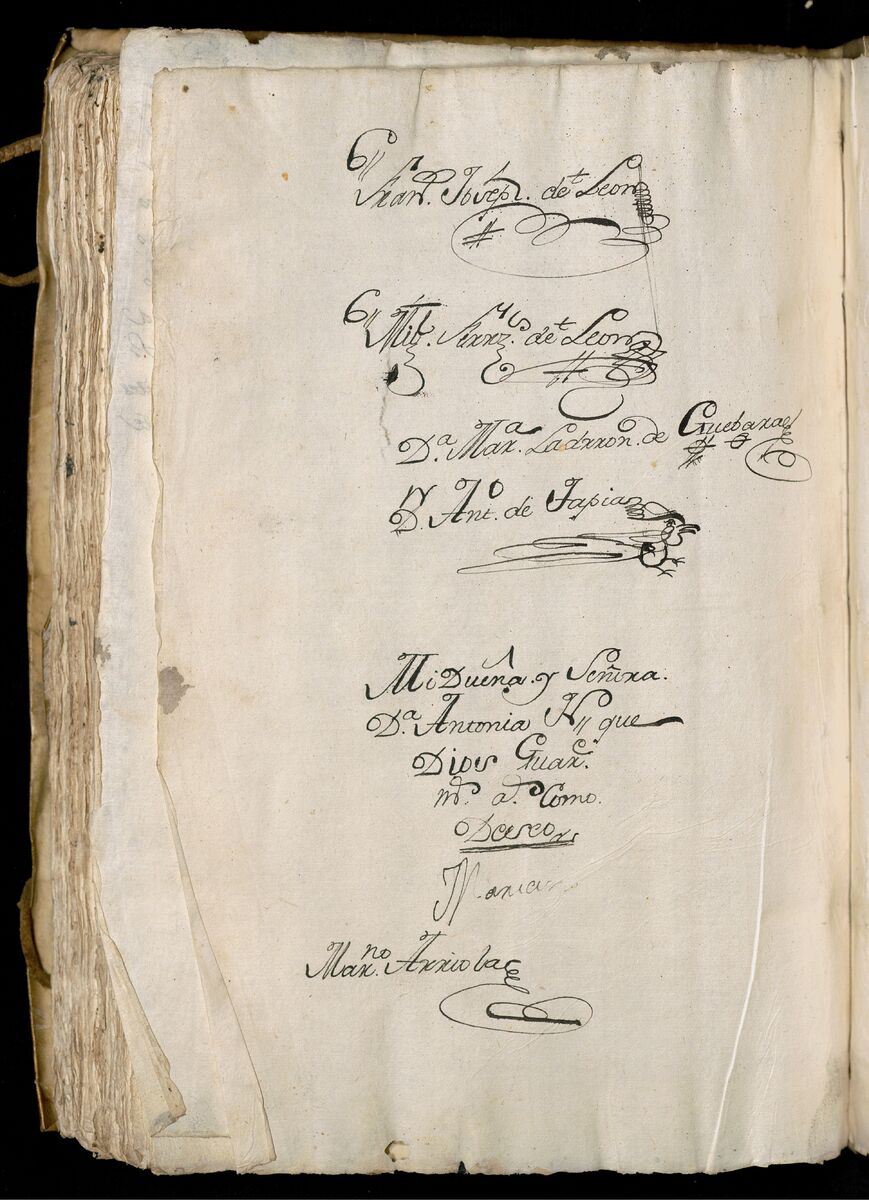 Fran.co Joseph. de Leon
Mig.l Ferrz.s de Leon
D.a Mar.a Ladrron. de Guebara
D.n Ant.o de Tapia
Mi Dueña. y Señra.
D.a Antonia H// que
Dios Guar.e
m.s a.s Como.
Deseo
Maria
Mar.no Arriola